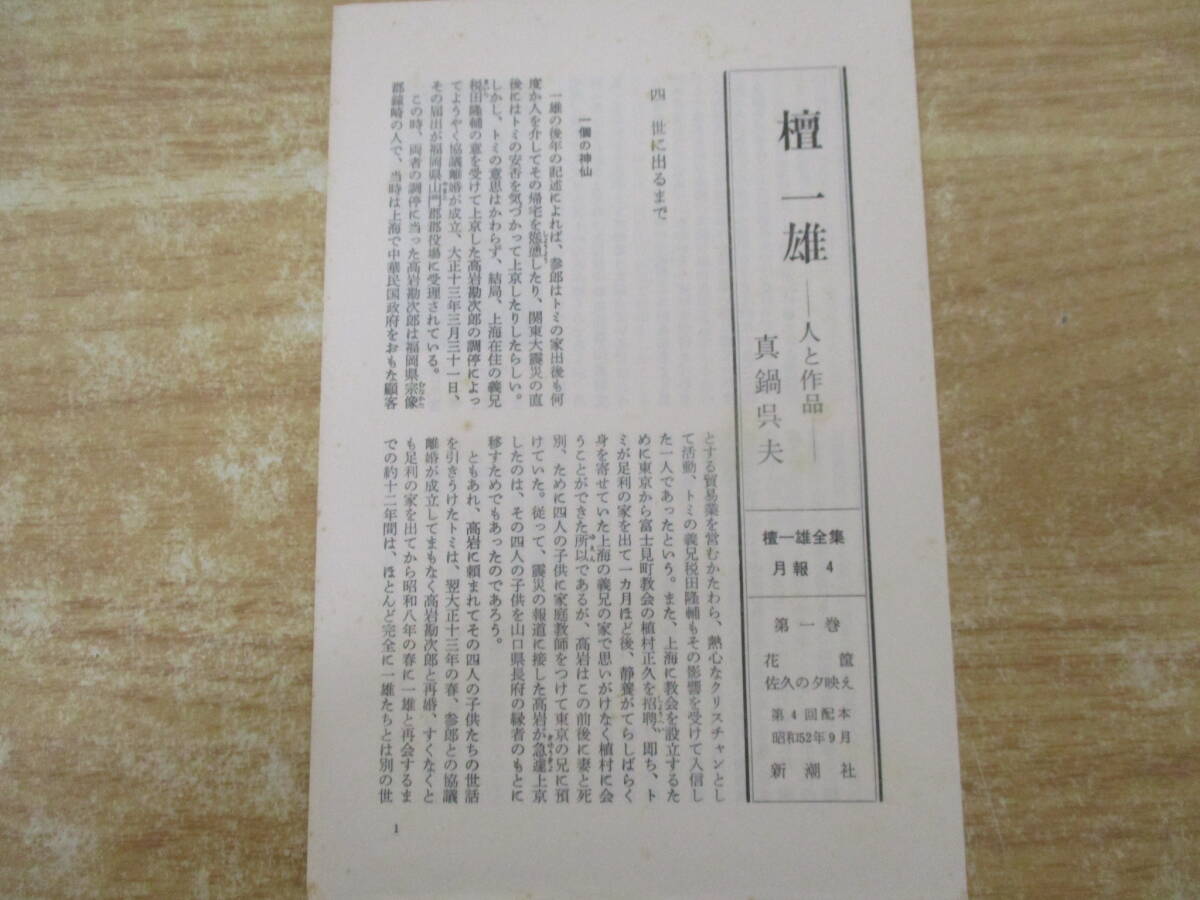 檀一雄
――人と作品――
真鍋呉夫
檀一雄全集
月報 4
第一巻
花筐
佐久の夕映え
第4回配本
昭和52年9月
新潮社
四 世に出るまで
一個の神仙
一雄の後年の記述によれば、参郎はトミの家出後も何
度か人を介してその帰宅を慫慂したり、関東大震災の直
後にはトミの安否を気づかって上京したりしたらしい。
しかし、トミの意思はかわらず、結局、上海在住の義兄
税田隆輔の意を受けて上京した高岩勘次郎の調停によっ
てようやく協議離婚が成立、大正十三年三月三十一日、
その届出が福岡県山門郡郡役場に受理されている。
この時、両者の調停に当った高岩勘次郎は福岡県宗像
郡鐘崎の人で、当時は上海で中華民国政府をおもな顧客
とする貿易業を営むかたわら、熱心なクリスチャンとし
て活動、トミの義兄税田隆輔もその影響を受けて入信し
た一人であったという。また、上海に教会を設立するた
めに東京から富士見町教会の植村正久を招聘、即ち、ト
ミが足利の家を出て一カ月ほど後、静養がてらしばらく
身を寄せていた上海の義兄の家で思いがけなく植村に会
うことができた所以であるが、高岩はこの前後に妻と死
別、ために四人の子供に家庭教師をつけて東京の兄に預
けていた。従って、震災の報道に接した高岩が急遽上京
したのは、その四人の子供を山口県長府の縁者のもとに
移すためでもあったのであろう。
ともあれ、高岩に頼まれてその四人の子供たちの世話
を引きうけたトミは、翌大正十三年の春、参郎との協議
離婚が成立してまもなく高岩勘次郎と再婚、すくなくと
も足利の家を出てから昭和八年の春に一雄と再会するま
での約十二年間は、ほとんど完全に一雄たちとは別の世
1